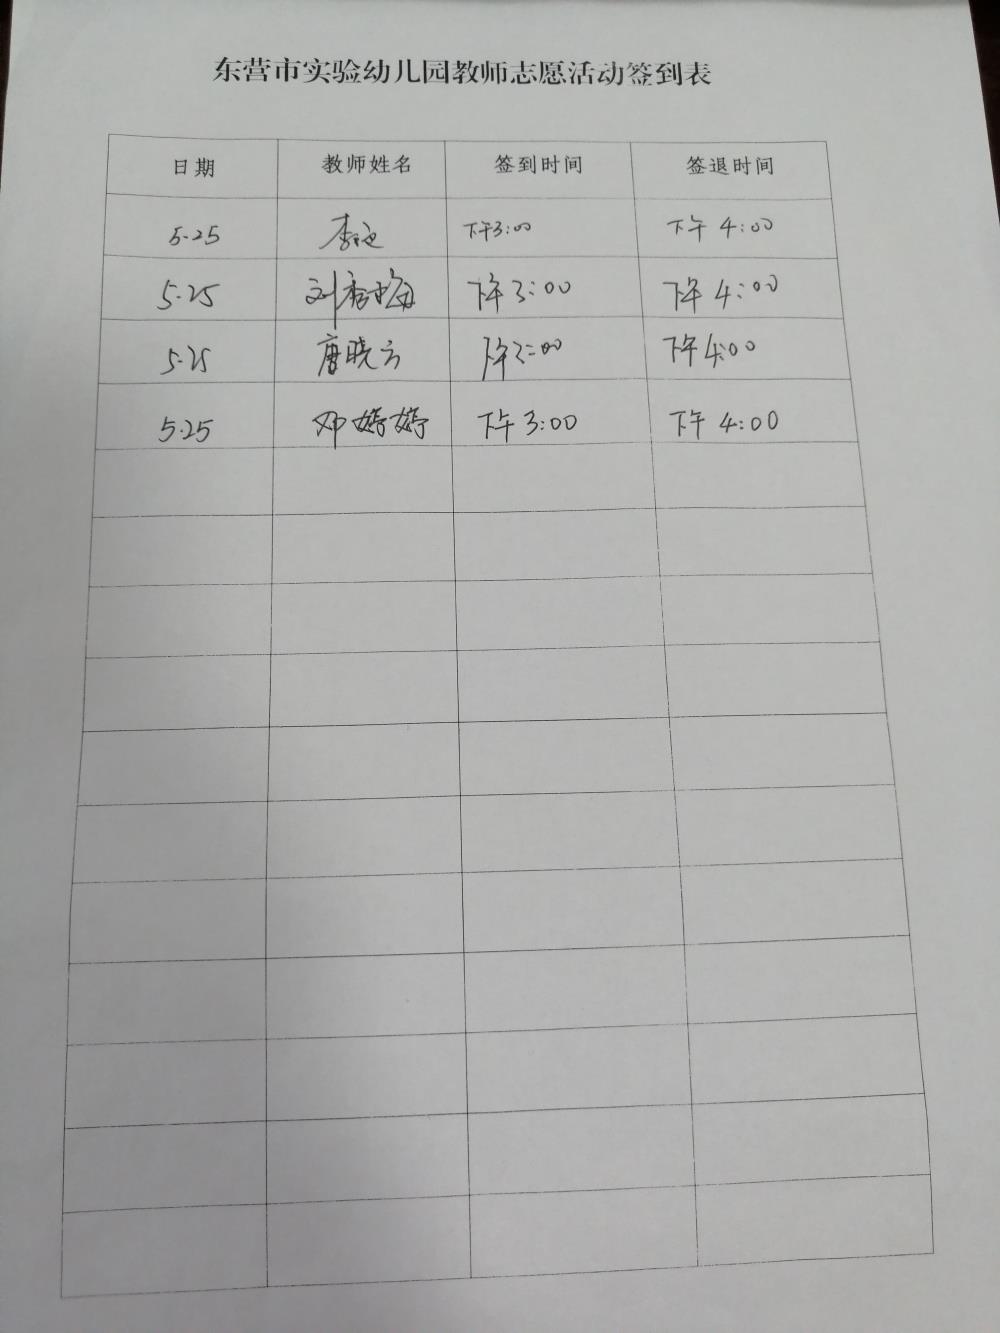 东营市实验幼儿园教师志愿活动签到表
日期 教师姓名 签到时间 签退时间
5.25 下午3:00 下午 4:00
5.25 下午 3:00 下午 4:00
5.25 唐晓云 下午3:00 下午4:00
5.25 邓婷婷 下午 3:00 下午 4:00